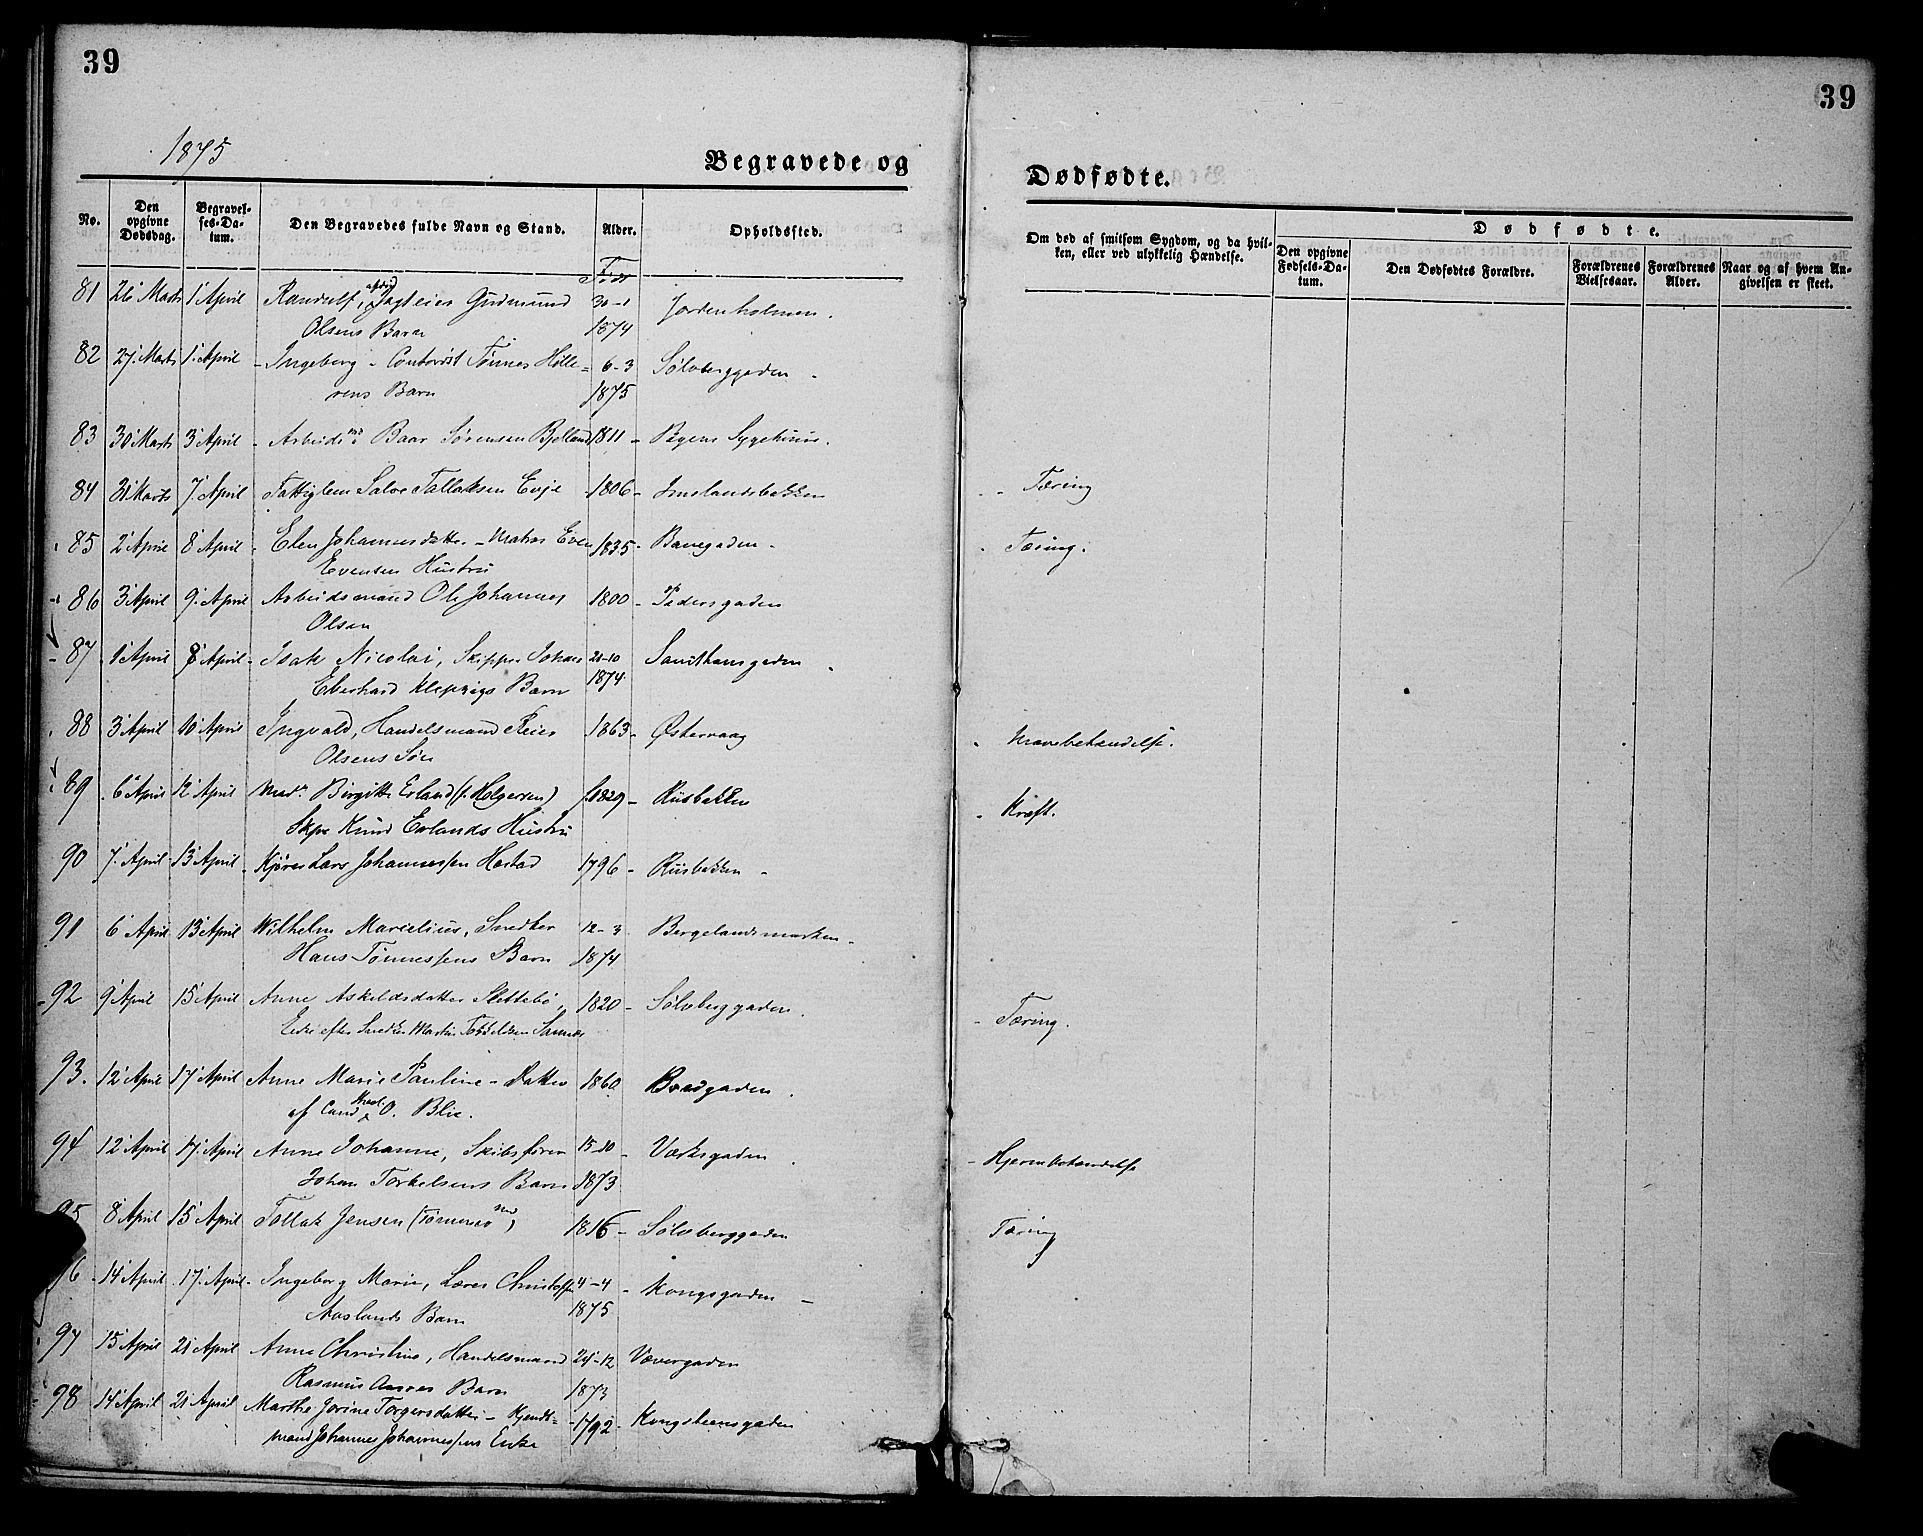 39
1875
Begravede og
No. Den opgivne Dødsdag. Begravelses-Datum. Den Begravedes fulde Navn og Stand. Alder. Opholdssted.
Født
81 26 Marts 1 April Randulf, afdød Jagteier Gudmund 30-1 Jorenholmen.
Olsens Barn 1874
82 27 Marts 1 April - Ingeborg - Contorist Tønnes Hille= 6-3 Sølvberggaden -
rens Barn 1875
83 30 Marts 3 April - Arbeidsmd Baar Sørensen Bjelland 1811 - Byens Sygehuus.
84 31 Marts 7 April - Fattiglem Salve Tallaksen Eeje 1806 - Imslandsbakken
85 2 April 8 April - Elen Johannesdatter - Matros Even 1835 - Banegaden -
Evensen Hustru
86 3 April 9 April Arbeidsmand Ole Johannes 1800 - Pedersgaden
Olsen
87 1 April 8 April - Isak Nicolai, Skipper Johan 21-10 Sancthansgaden
Eberhard Kleppigs Barn 1874
88 3 April 10 April Ingvald, Handelsmand Reier 1863 - Østervaag
Olsens Søn
89 6 April 12 April Mad. Birgitte Erland (f. Holgersen) f. 1829 - Riisbakken
Skpr Knud Erlands Hustru
90 7 April 13 April - Kjører Lars Johannessen Hastad 1796 - Riisbakken -
91 6 April 13 April Wilhelm Marselius, Snedker 12-3 Bergelandsmarken -
Hans Tønnessens Barn 1874
92 9 April 15 April Anne Askeldsdatter Slettebø, 1820 - Sølvberggaden.
Enke efter Snedker Martin Torkelsen Sannes
93. 12 April 17 April Anne Marie Pauline - Datter 1860 Bredgaden.
af Cand Med. O. Blie.
94 12 April 17 April Anne Johanne, Skibsfører 15-10 - Værksgaden
Johan Torkelsens Barn 1873
95 8 April 15 April Tollak Jensen (Tømmermd), 1816 - Sølvberggaden
96 14 April 17 April - Ingeborg Marie, Lærer Christoffer 4-4 - Kongsgaden -
Aaslands Barn 1875
97 15 April 21 April Anne Christine, Handelsmand 24-12 Vævergaden
Rasmus Barn 1873
98 14 April 21 April Marthe Jorine Torgersdatter - 1792 - Kongsteensgaden
mand Johannes Johannessens Enke
39
Dødfødte.
Om død af smitsom Sygdom, og da hvilken, eller ved ulykkelig Hændelse.
Dødfødte.
Den opgivne Fødsels-Datum. Den Dødfødtes Forældre. Forældrenes Vielsesaar. Forældrenes Alder. Naar og af hvem Angivelsen er skeet.
- - Tæring
- Tæring.
- Mavebetændelse.
- Kræft.
- Tæring.
- Hjernebetændelse
Tæring